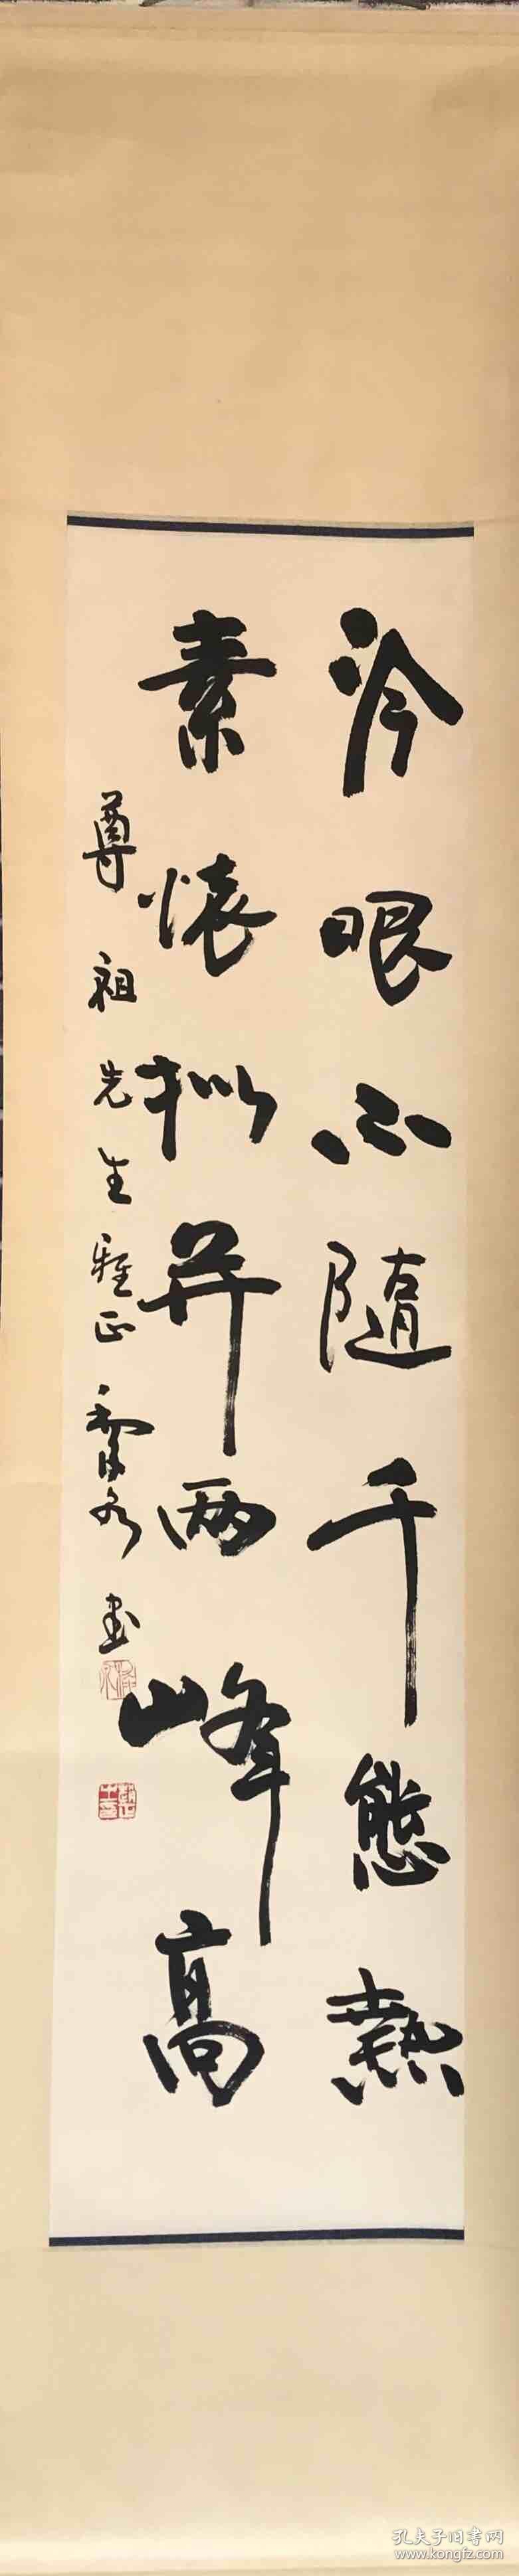 冷眼不隨千態熱
素懷拟并兩峰高
尊祖先生雅正
書
孔夫子旧书网
www.kongfz.com